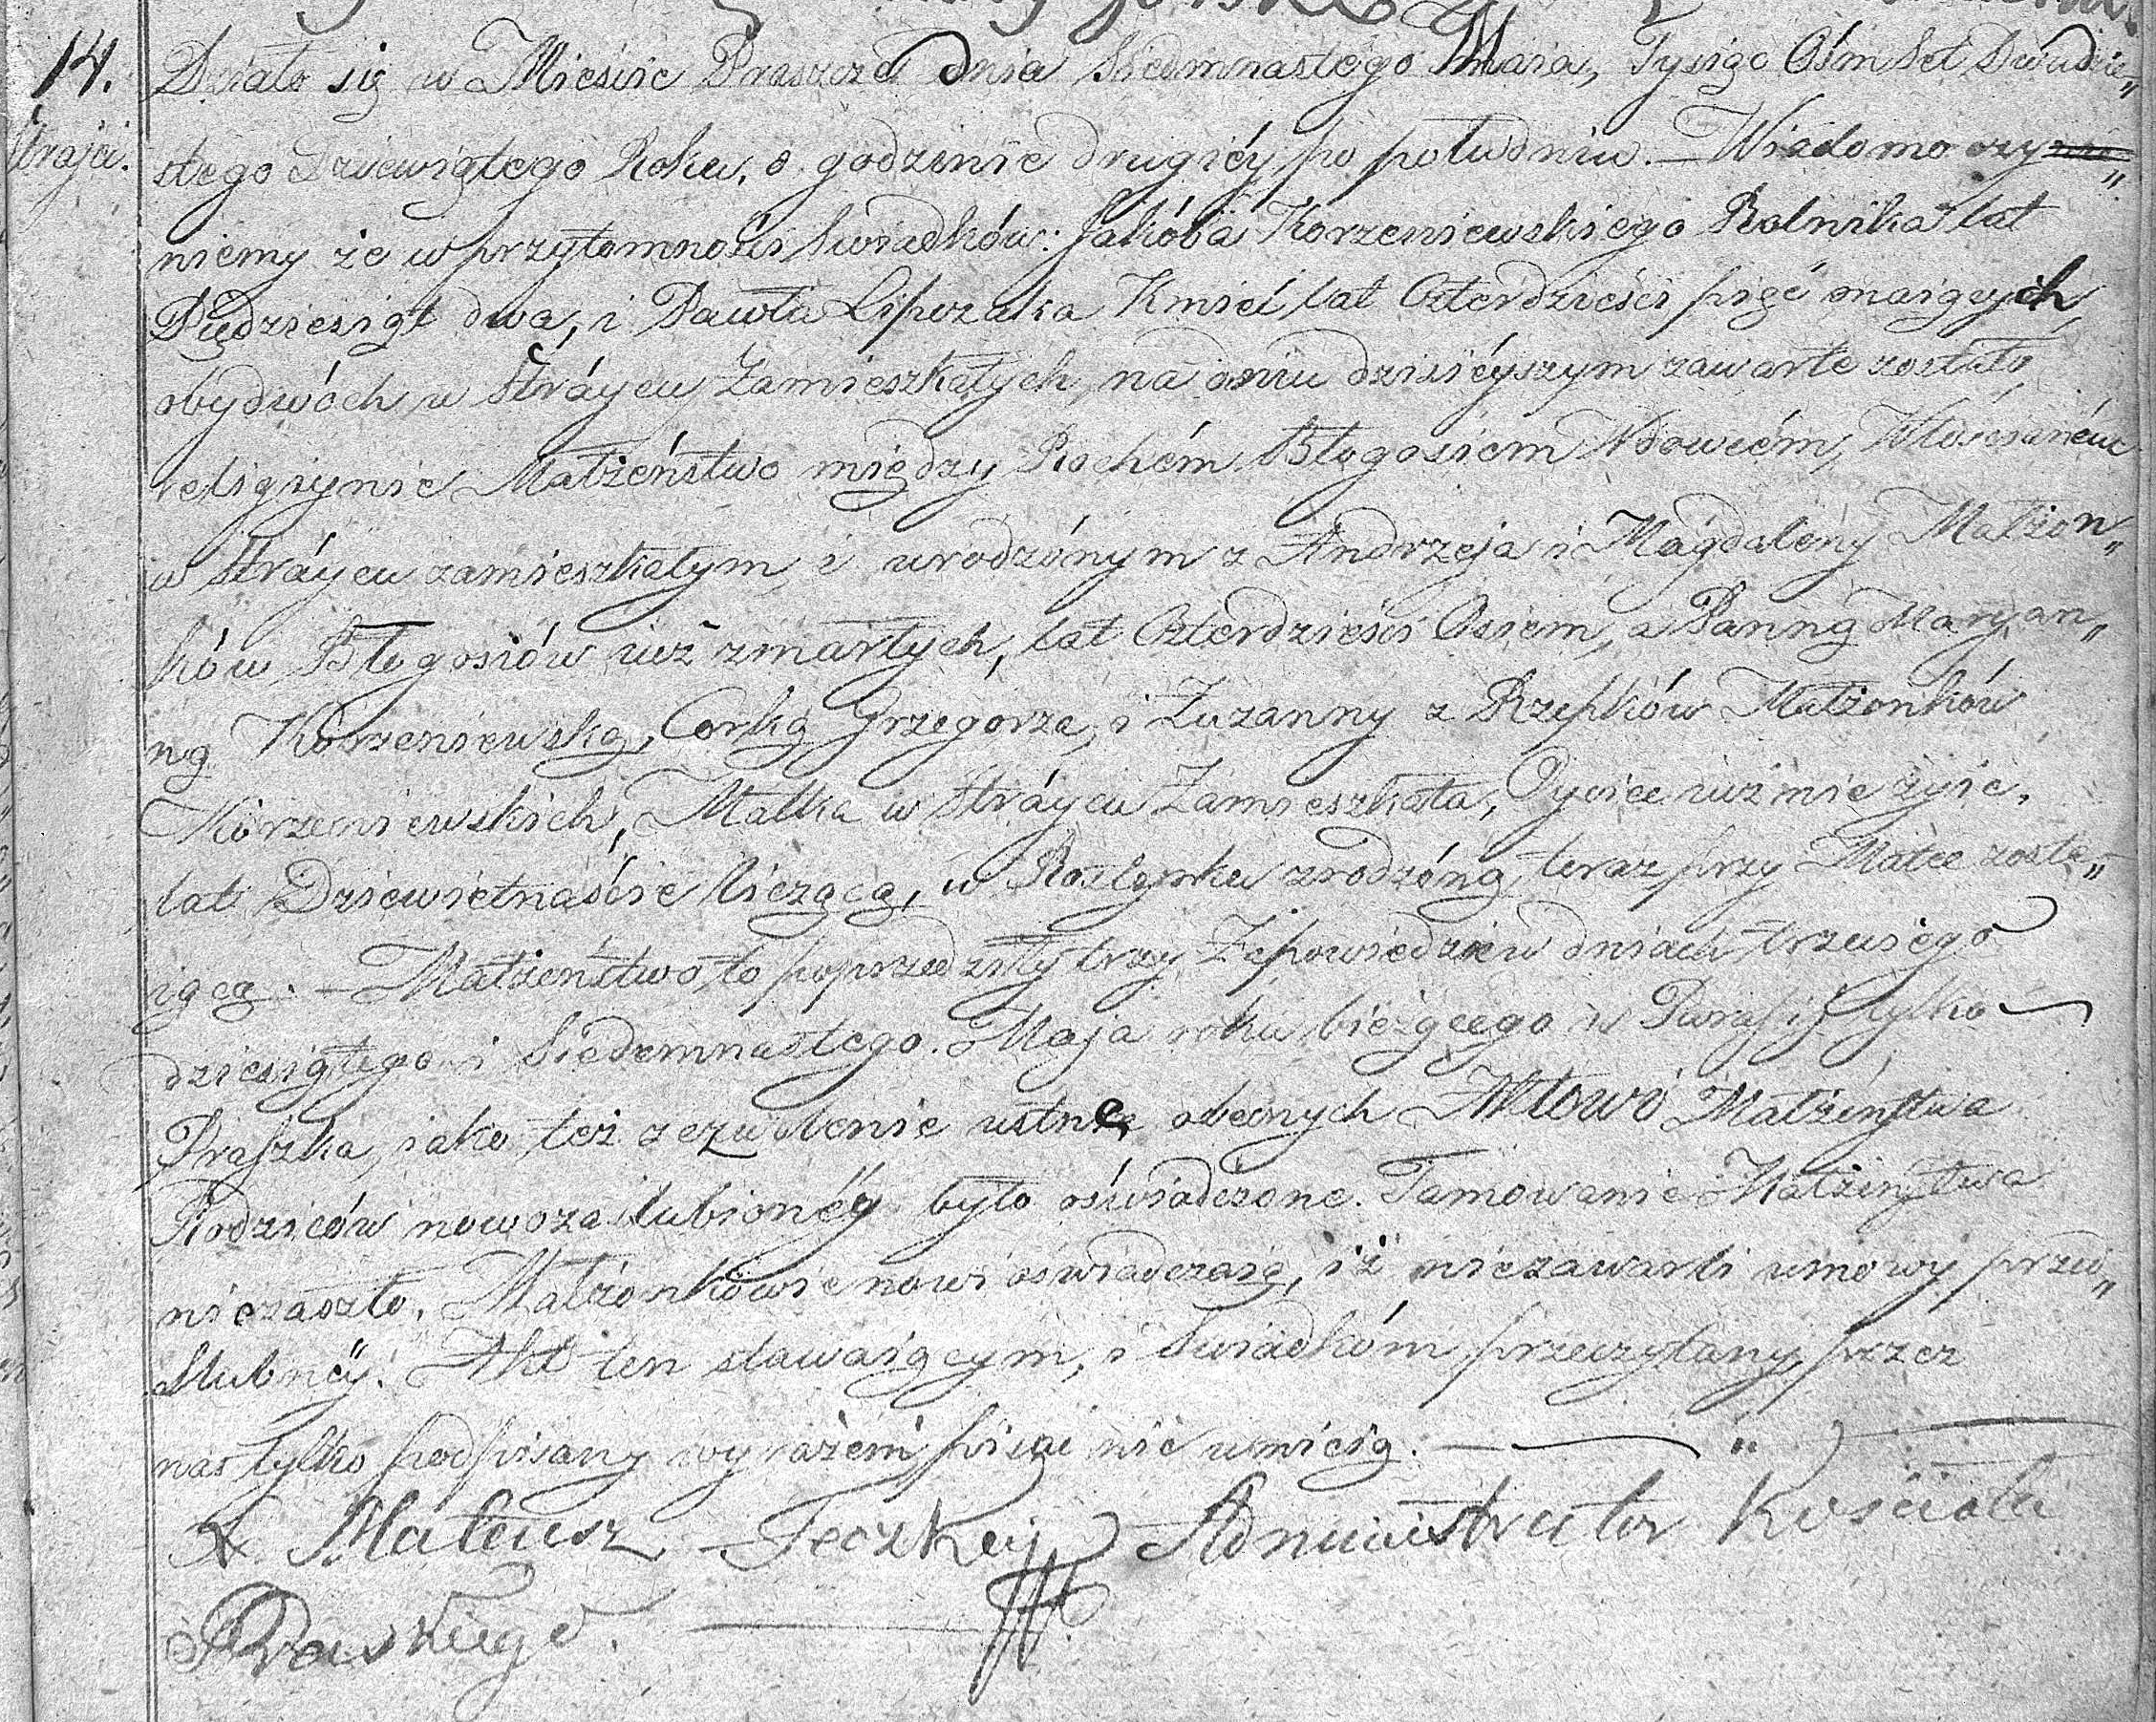 14.
Strajec.
Działo się w Mieście Praszce dnia Siedmnastego Maia, Tysiąc Ośm Set Dwudzie„
stego Dziewiątego Roku, o godzinie drugiéy po południu. — Wiadomo czy„
niemy że w przytomności Swiadków: Jakóba Korzeniewskiego Rolnika lat
Piędziesiąt dwa, i Pawła Lipczaka Kmieć lat Czterdzieści pięć maiących
obydwóch w Stráycu Zamieszkałych, na dniu dzisiéyszym zawarte zostało
religiynie Małżeństwo między Rochém Błogosiem Wdowcém, Włościanéw
w Stráycu zamieszkałym i urodzónym z Andrzeja i Magdaleny Małżon„
ków Błogosiów iuż zmarłych, lat Czterdzieści Osiem, a Panną Maryan„
ną Korzeniewską, Corką Grzegorza, i Zuzanny z Rzepków Małżonków
Korzeniewskich, Matka w Stráycu Zamieszkała, Oyciec iuż nie żyie,
lat Dziewietnaście liczącą, w Rozterku zrodzóną, teraz przy Matce zosta„
iącą. — Małżeństwo to poprzedziły trzy Zapowiedzie w dniach trzeciego
dziesiątego i Siedemnastego. Maja roku bieżącego w Parafij tylko —
Praszka, iako też zezwolenie ustne, obecnych Aktowi Małżeństwa
Rodziców nowozaślubionéy było oświadczone. Tamowanie Małżeństwa
niezaszło. Małżonkowie nowi oświadczaią, iż niezawarli umowy przed„
slubnéy. Akt ten stawaiącym, i Swiadkóm przeczytany, przez
nas tylko podpisany wyrażeni pisać nie umieią. —
X. Mateusz Administrator Kościoła
Praskiego.